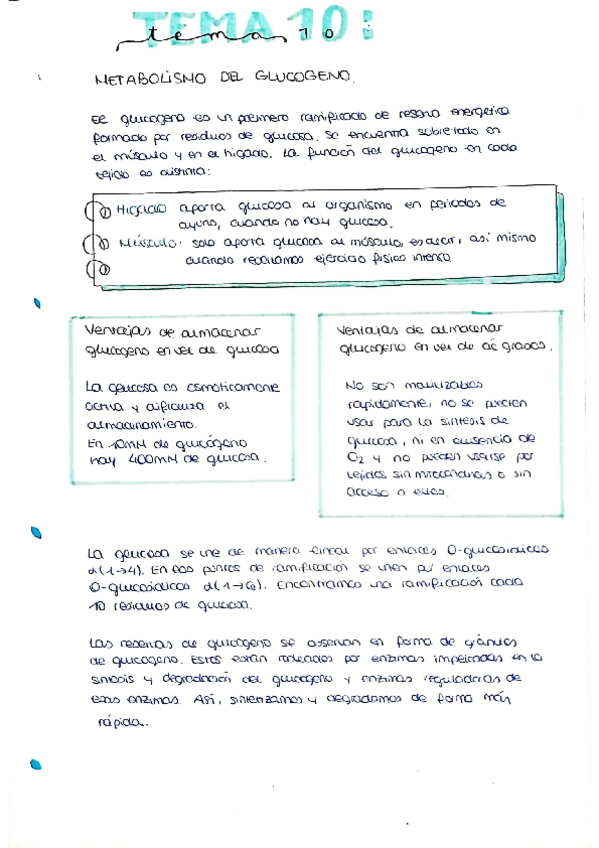 TEMA 10:
tema 10
METABOLISMO DEL GLUCOGENO.
El glucogeno es un polimero ramificado de reserva energetica
formado por residuos de glucosa. Se encuentra sobretodo en
el músculo y en el higado. La función del glucogeno en cada
tejido es distinta:
Higado aporta glucosa al organismo en periodos de
ayuno, cuando no hay glucosa.
Músculo: solo aporta glucosa al músculo, es decir, asi mismo
cuando realizamos ejercicio fisico intenso
Ventajas de almacenar
glucogeno en vez de glucosa
La glucosa es osmoticamente
activa y dificulta el
almacenamiento.
En 10nM de glucógeno
hay 400mM de glucosa.
Ventajas de almacenar
glucogeno en vez de ác grasos.
No son movilizables
rapidamente, no se pueden
usar para la sintesis de
glucosa, ni en ausencia de
O2 y no pueden usarse por
tejidos sin mitocondrias o sin
acceso a ellos.
La glucosa se une de manera lineal por enlaces O-glucosidicos
α(1→4). En los puntos de ramificación se unen por enlaces
O-glucosidicos α(1→6). Encontramos una ramificación cada
10 residuos de glucosa.
Las reservas de glucogeno se observan en forma de gránulos
de glucogeno. Estos están rodeados por enzimas implicadas en la
sintesis y degradación del glucogeno y enzimas reguladoras de
esas enzimas. Así, sintetizamos y degradamos de forma más
rápida.